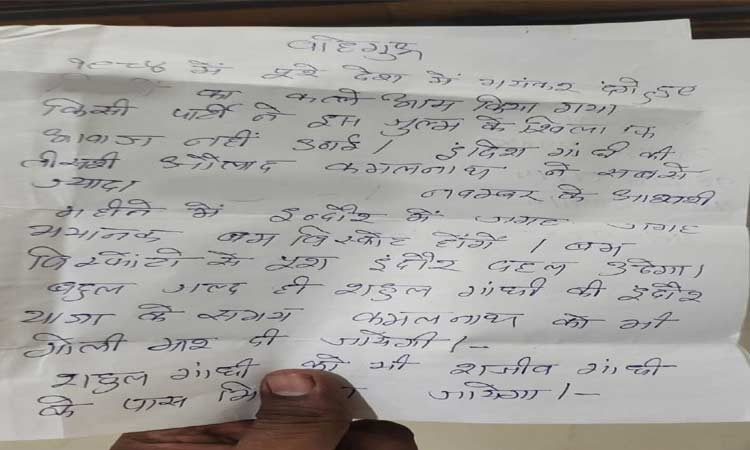 वाहेगुरू
१९८४ में पूरे देश में भयंकर दंगे हुए
का कत्ले आम किया गया
किसी पार्टी ने इस जुल्म के खिलाफ
आवाज नहीं उठाई। इंदिरा गांधी की
तीसरी औलाद कमलनाथ ने सबसे
ज्यादा नवम्बर के आखरी
महीने में इन्दौर में जगह जगह
भयानक बम विस्फोट होंगें। बम
विस्फोटों से पूरा इंदौर दहल उठेगा।
बहुत जल्द ही राहुल गांधी की इंदौर
यात्रा के समय कमलनाथ को भी
गोली मार दी जायेगी।-
राहुल गांधी को भी राजीव गांधी
के पास जायेगा।-